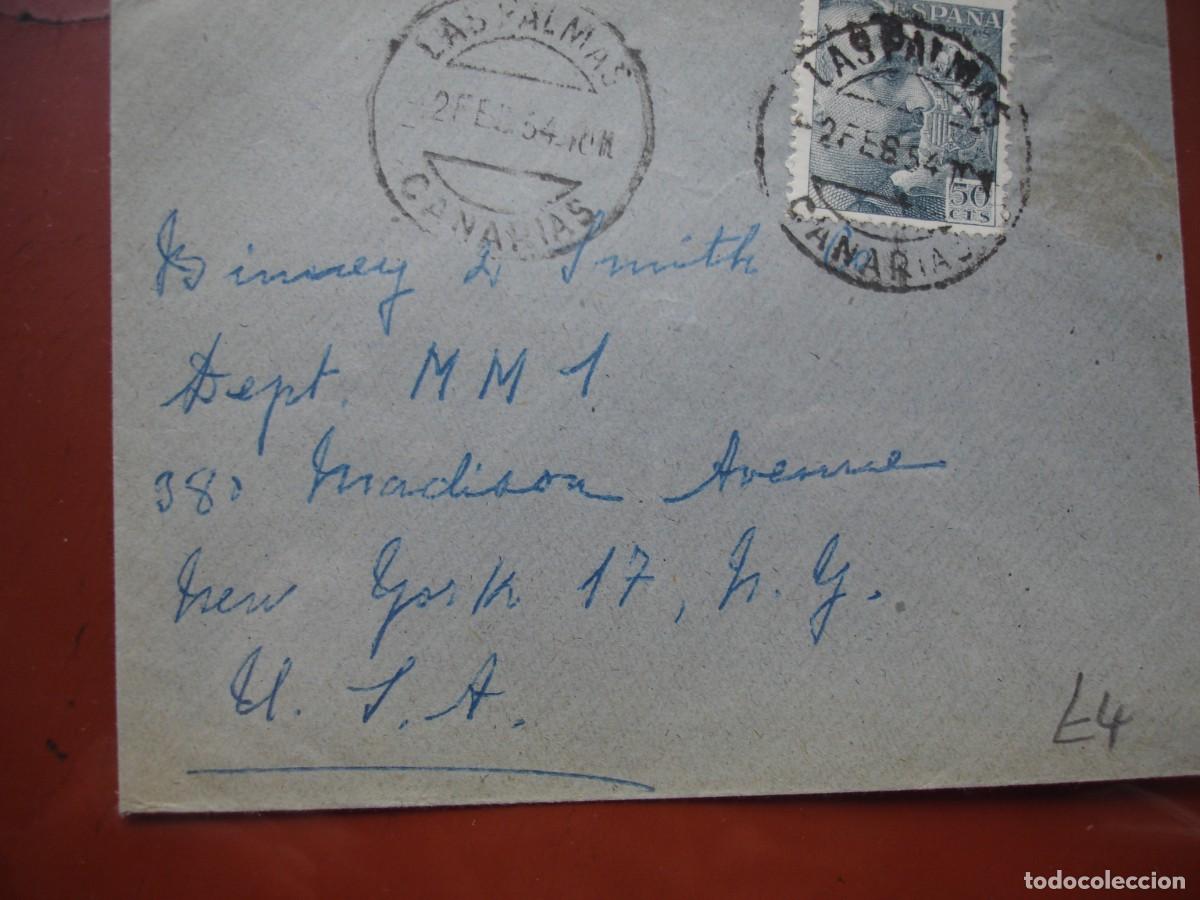 ESPAÑA
LAS PALMAS
2 FEB 54 10M
CANARIAS
LAS PALMAS
2 FEB 54
CANARIAS
50
CTS
Binney & Smith Co
Dept. M M 1
380 Madison Avenue
New York 17, N. Y.
U. S. A.
£4
todocoleccion